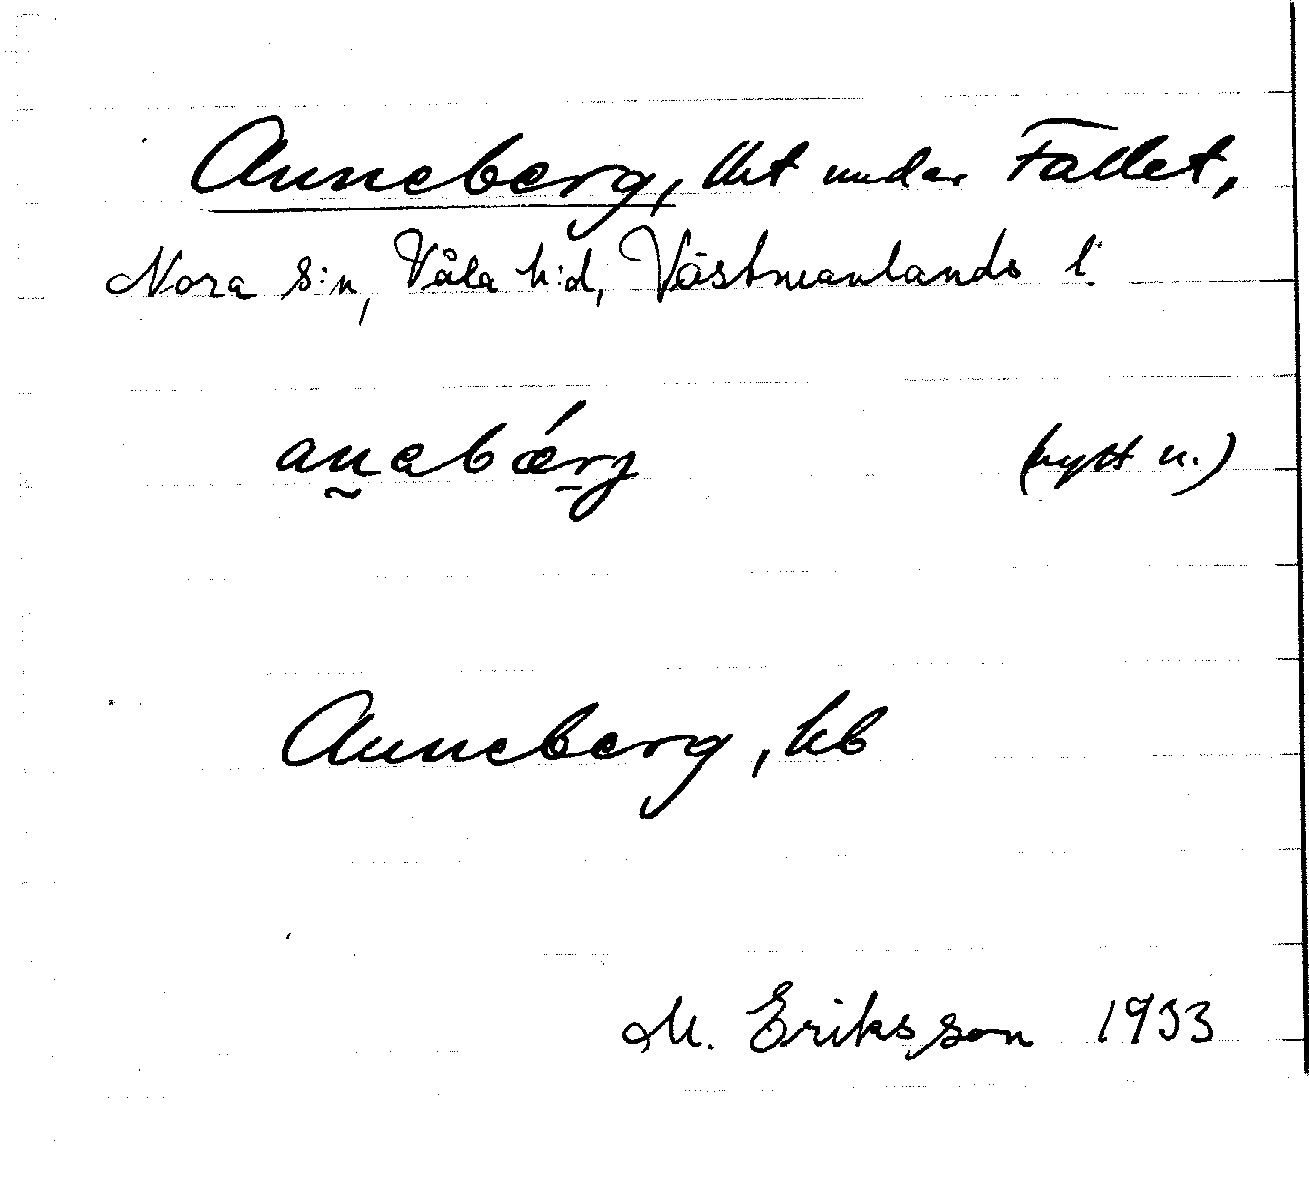 Anneberg, lht under Fallet,
Nora s:n, Våla h:d, Västmanlands l.
anebǽrg (nytt n.)
Anneberg, kb
M. Eriksson 1933